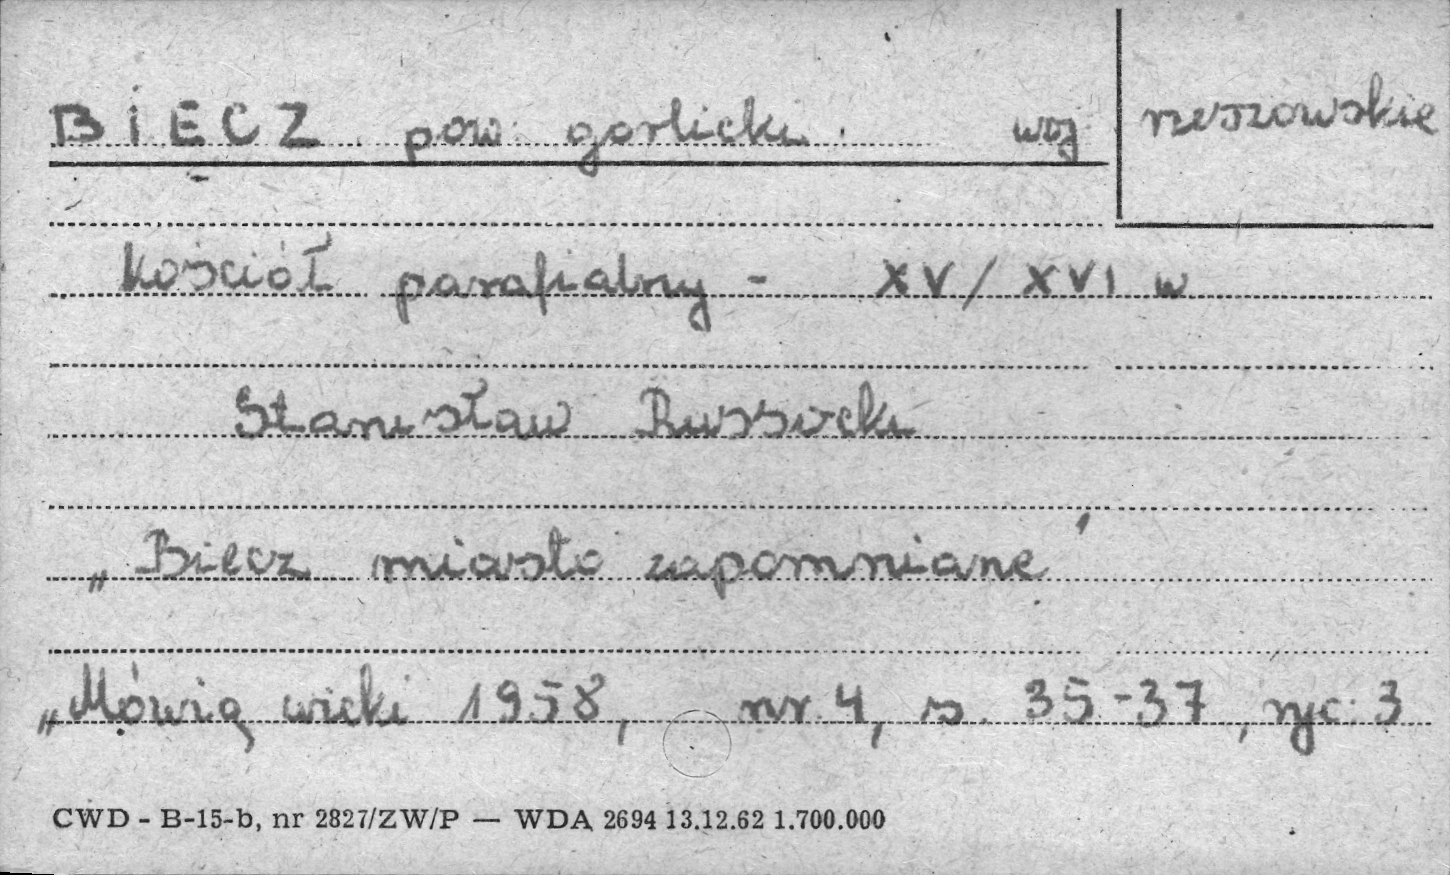 BIECZ pow. gorlicki. woj. rzeszowskie
Kościół parafialny - XV/XVI w
Stanisław Russocki
„Biecz miasto zapomniane"
„Mówią wieki 1958, nr. 4, s. 35-37, ryc. 3
CWD - B-15-b, nr 2827/ZW/P — WDA 2694 13.12.62 1.700.000